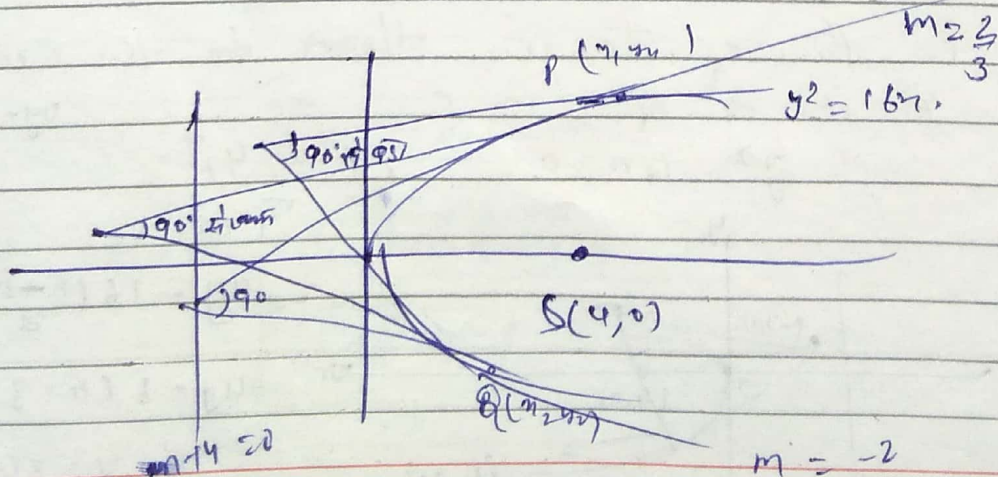 m = 2/3
P(x₁, y₁)
y² = 16x.
90° से बड़ा
90° से कम
90
S(4,0)
Q(x₂, y₂)
x+4 = 0
m = -2